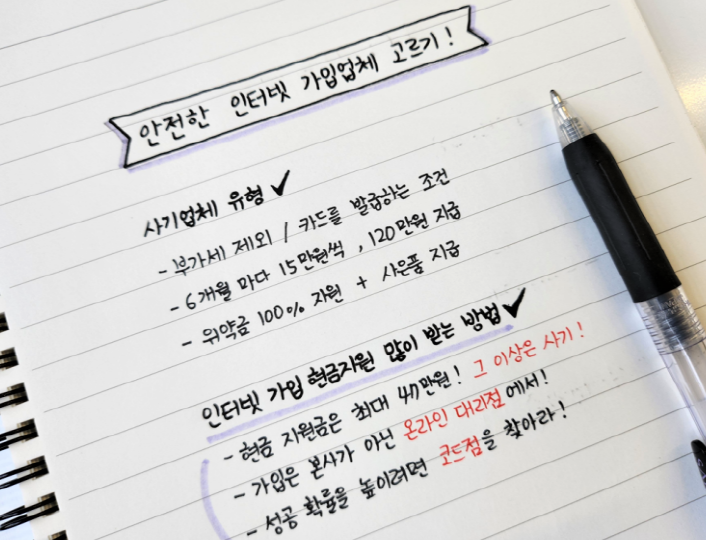 안전한 인터넷 가입업체 고르기!
사기업체 유형 ✓
- 부가세 제외 / 카드를 발급하는 조건
- 6개월 마다 15만원씩, 120만원 지급
- 위약금 100% 지원 + 사은품 지급
인터넷 가입 현금지원 많이 받는 방법 ✓
- 현금 지원금은 최대 47만원! 그 이상은 사기!
- 가입은 본사가 아닌 온라인 대리점에서!
- 성공 확률을 높이려면 코드점을 찾아라!